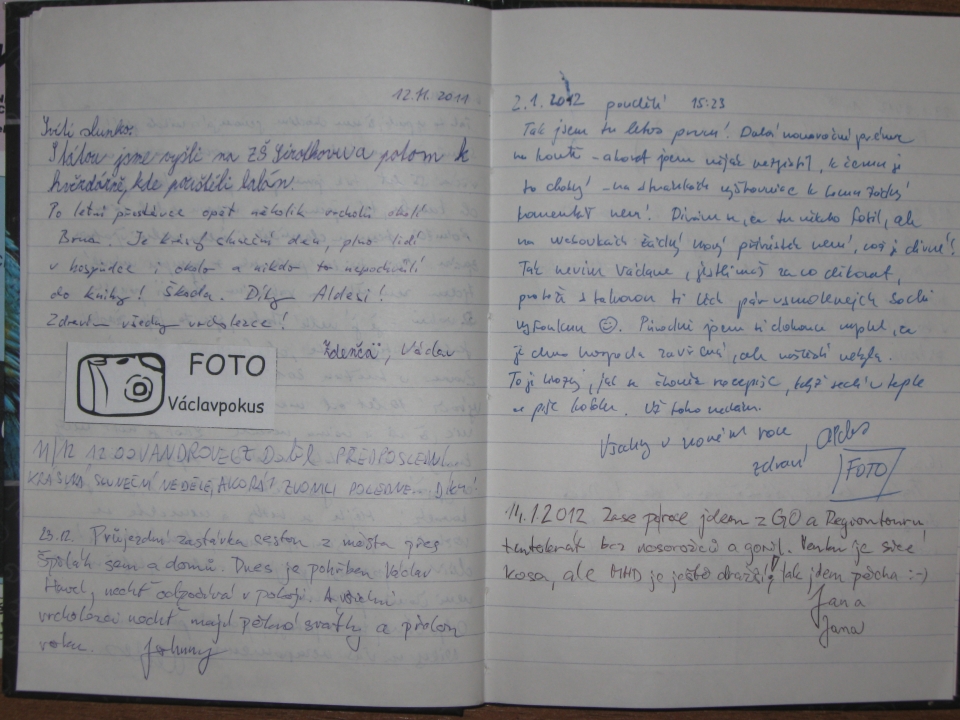 12.11.2011
Svítí slunko.
S tátou jsme vyšli na ZŠ a potom k
hvězdárně, kde pouštěli balón
Po letní přestávce opět několik vrcholů okolí
Brna. Je krásný sluneční den, plno lidí
v hospůdce i okolo a nikdo to nepochválí
do knihy! Škoda. Díky Aldesi!
Zdravím všechny vrcholezce!
Zdenča, Václav
FOTO
Václavpokus
PŘEDPOSLEDNÍ
KRÁSNÁ SLUNEČNÍ NEDĚLE, AKORÁT POLEDNE. DÍKY!
23.12. Průjezdní zastávka cestou z města přes
Špilák sem a domů. Dnes je pohřben Václav
Havel, nechť odpočívá v pokoji. A všichni
vrcholezci nechť mají pěkné svátky a přelom
roku. Johnny
2.1.2012 pondělí 15:23
Tak jsem tu letos první! Další novoroční
na koutě - akorát jsem nějak nezjistil, k čemu je
to dobrý - na stránkách k tomu žádný
komentář není! Dívám se, že tu někdo fotil, ale
na webovkách žádný nový přírůstek není, což je divné!
Tak nevím Václave, jestli máš za co děkovat,
protože s takovou ti těch pár usmolenejch
vyfouknu ☺. Původně jsem si dokonce myslel, že
je dnes hospoda zavřená, ale naštěstí nebyla.
To je hrozný, jak se člověk rozepíše, když sedí v teple
a pije kofolu. Už toho nechám.
Všechny v novém roce
zdraví Aldes
FOTO
14.1.2012 Zase jdem z GO a Regiontouru,
tentokrát bez nosorožců a goril. Venku je sice
kosa, ale MHD je ještě dražší, tak jdem pěcha :-)
Jana
Jana